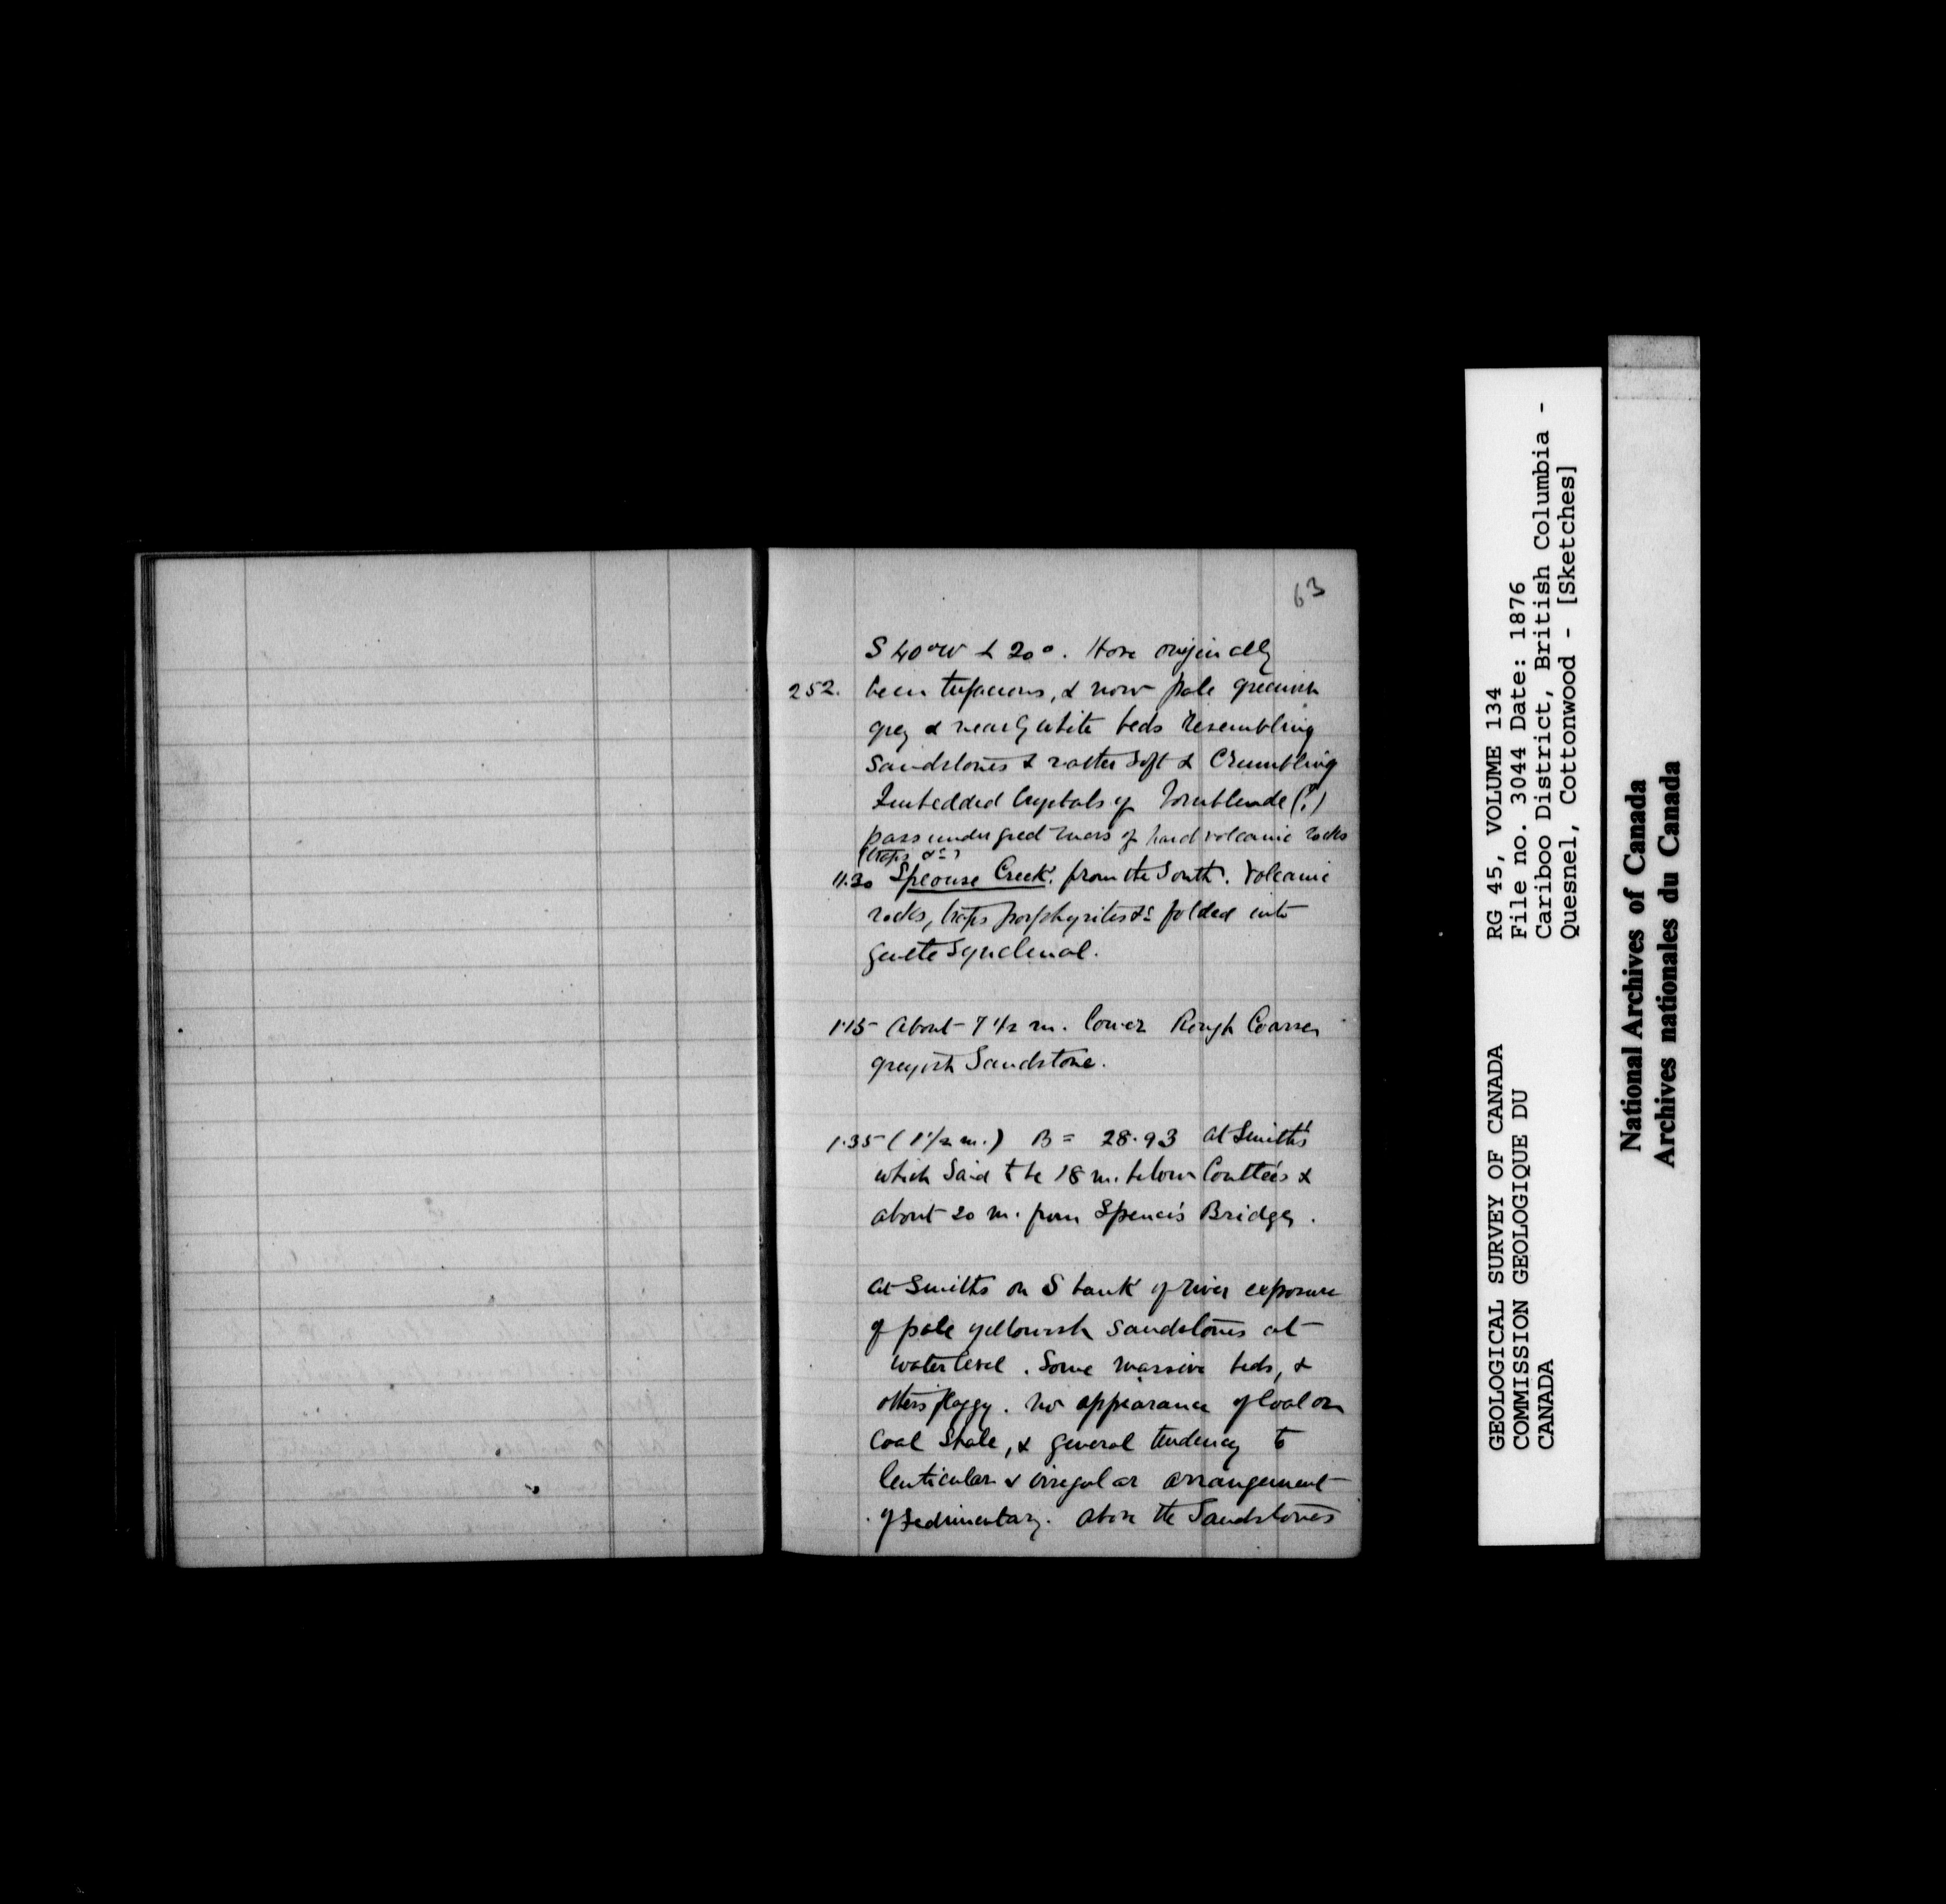 63
S 40°W ∠ 20°. Have originally
252. been tufaceous, & now pale greenish
grey & nearly white beds resembling
Sandstones & rather soft & Crumbling
Imbedded Crystals of hornblende (?)
pass under great mass of hard volcanic rocks
(traps &c)
11.30 Speouse Creek. from the South. Volcanic
rocks, traps porphyrites &c folded into
gentle Synclinal.
1.15 About 7 1/2 m. lower Rough Coarse
greyish Sandstone.
1.35 (1 1/2 m.) B = 28.93 at Smith's
which Said to be 18 m. below Couttee's &
about 20 m. from Spence's Bridge.
At Smiths on S bank of river exposure
of pale yellowish Sandstones at
water level. Some massive beds, &
others flaggy. No appearance of Coal or
Coal Shale, & general tendency to
lenticular & irregular arrangement
of Sedimentary. Above the Sandstones
GEOLOGICAL SURVEY OF CANADA
COMMISSION GEOLOGIQUE DU
CANADA
RG 45, VOLUME 134
File no. 3044 Date: 1876
Cariboo District, British Columbia -
Quesnel, Cottonwood - [Sketches]
National Archives of Canada
Archives nationales du Canada